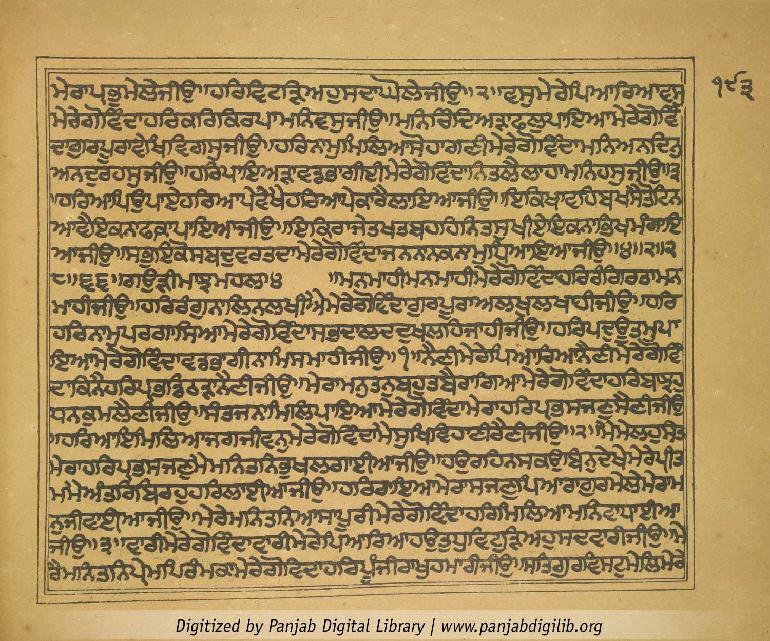 ਮੇਰਾਪ੍ਰਭੁਮੇਲੇਜੀਉ॥ਹਰਿਵਿਟੜਿਅਹੁਸਦਾਘੋਲੇਜੀਉ॥੨॥ਵਸੁਮੇਰੇਪਿਆਰਿਆਵਸੁ
ਮੇਰੇਗੋਵਿੰਦਾਹਰਿਕਰਿਕਿਰਪਾਮਨਿਵਸੁਜੀਉ॥ਮਨਿਚਿੰਦਿਅੜਾਫਲੁਪਾਇਆਮੇਰੇਗੋਵਿੰ
ਦਾਗੁਰਪੂਰਾਵੇਖਿਵਿਗਸੁਜੀਉ॥ਹਰਿਨਾਮੁਮਿਲਿਆਸੋਹਾਗਣੀਮੇਰੇਗੋਵਿੰਦਾਮਨਿਅਨਦਿਨੁ
ਅਨਦੁਰਹਸੁਜੀਉ॥ਹਰਿਪਾਇਅੜਾਵਡਭਾਗੀਈਮੇਰੇਗੋਵਿੰਦਾਨਿਤਲੈਲਾਹਾਮਨਿਹਸੁਜੀਉ॥੩
॥ਹਰਿਆਪਿਉਪਾਏਹਰਿਆਪੇਵੇਖੈਹਰਿਆਪੇਕਾਰੈਲਾਇਆਜੀਉ॥ਇਕਿਖਾਵਹਿਬਖਸਤੋਟਿਨ
ਆਵੈਇਕਨਾਫਕਾਪਾਇਆਜੀਉ॥ਇਕਿਰਾਜੇਤਖਤਬਹਹਿਨਿਤਸੁਖੀਏਇਕਨਾਭਿਖਮੰਗਾਇ
ਆਜੀਉ॥ਸਭੁਇਕੋਸਬਦੁਵਰਤਦਾਮੇਰੇਗੋਵਿੰਦਾਜਨਨਾਨਕਨਾਮੁਧਿਆਇਆਜੀਉ॥੪॥੨॥੨
੮॥੬੬॥ਗਉੜੀਮਾਝਮਹਲਾ੪ ॥ਮਨਮਾਹੀਮਨਮਾਹੀਮੇਰੇਗੋਵਿੰਦਾਹਰਿਰੰਗਿਰਤਾਮਨ
ਮਾਹੀਜੀਉ॥ਹਰਿਰੰਗੁਨਾਲਿਨਲਖੀਐਮੇਰੇਗੋਵਿੰਦਾਗੁਰਪੂਰਾਅਲਖੁਲਖਾਹੀਜੀਉ॥ਹਰਿ
ਹਰਿਨਾਮੁਪਰਗਾਸਿਆਮੇਰੇਗੋਵਿੰਦਾਸਭਦਾਲਦਦੁਖਲਹਿਜਾਹੀਜੀਉ॥ਹਰਿਪਦੁਊਤਮੁਪਾ
ਇਆਮੇਰੇਗੋਵਿੰਦਾਵਡਭਾਗੀਨਾਮਿਸਮਾਹੀਜੀਉ॥੧॥ਨੈਣੀਮੇਰੇਪਿਆਰਿਆਨੈਣੀਮੇਰੇਗੋਵਿੰ
ਦਾਕਿਨੈਹਰਿਪ੍ਰਭੁਡਿਠੜਾਨੈਣੀਜੀਉ॥ਮੇਰਾਮਨੁਤਨੁਬਹੁਤੁਬੈਰਾਗਿਆਮੇਰੇਗੋਵਿੰਦਾਹਰਿਬਾਝਹੁ
ਧਨਕੁਮਲੈਣੀਜੀਉ॥ਸੰਤਜਨਾਮਿਲਿਪਾਇਆਮੇਰੇਗੋਵਿੰਦਾਮੇਰਾਹਰਿਪ੍ਰਭੁਸਜਣੁਸੈਣੀਜੀਉ
॥ਹਰਿਆਇਮਿਲਿਆਜਗਜੀਵਨੁਮੇਰੇਗੋਵਿੰਦਾਮੈਸੁਖਿਵਿਹਾਣੀਰੈਣੀਜੀਉ॥੨॥ਮੈਮੇਲਹੁਸੰਤ
ਮੇਰਾਹਰਿਪ੍ਰਭੁਸਜਣੁਮੈਮਨਿਤਨਿਭੁਖਲਗਾਈਆਜੀਉ॥ਹਉਰਹਿਨਸਕਉਬਿਨੁਦੇਖੇਮੇਰੇਪ੍ਰੀਤ
ਮਮੈਅੰਤਰਿਬਿਰਹੁਹਰਿਲਾਈਆਜੀਉ॥ਹਰਿਰਾਇਆਮੇਰਾਸਜਣੁਪਿਆਰਾਗੁਰੁਮੇਲੇਮੇਰਾਮ
ਨੁਜੀਵਾਈਆਜੀਉ॥ਮੇਰੈਮਨਿਤਨਿਆਸਾਪੂਰੀਮੇਰੇਗੋਵਿੰਦਾਹਰਿਮਿਲਿਆਮਨਿਵਾਧਾਈਆ
ਜੀਉ॥੩॥ਵਾਰੀਮੇਰੇਗੋਵਿੰਦਾਵਾਰੀਮੇਰੇਪਿਆਰਿਆਹਉਤੁਧੁਵਿਟੜਿਅਹੁਸਦਵਾਰੀਜੀਉ॥ਮੇ
ਰੈਮਨਿਤਨਿਪ੍ਰੇਮੁਪਿਰੰਮਕਾਮੇਰੇਗੋਵਿੰਦਾਹਰਿਪੂੰਜੀਰਾਖੁਹਮਾਰੀਜੀਉ॥ਸਤਿਗੁਰੁਵਿਸਟੁਮੇਲਿਮੇਰੇ
੧੯੩
Digitized by Panjab Digital Library | www.panjabdigilib.org